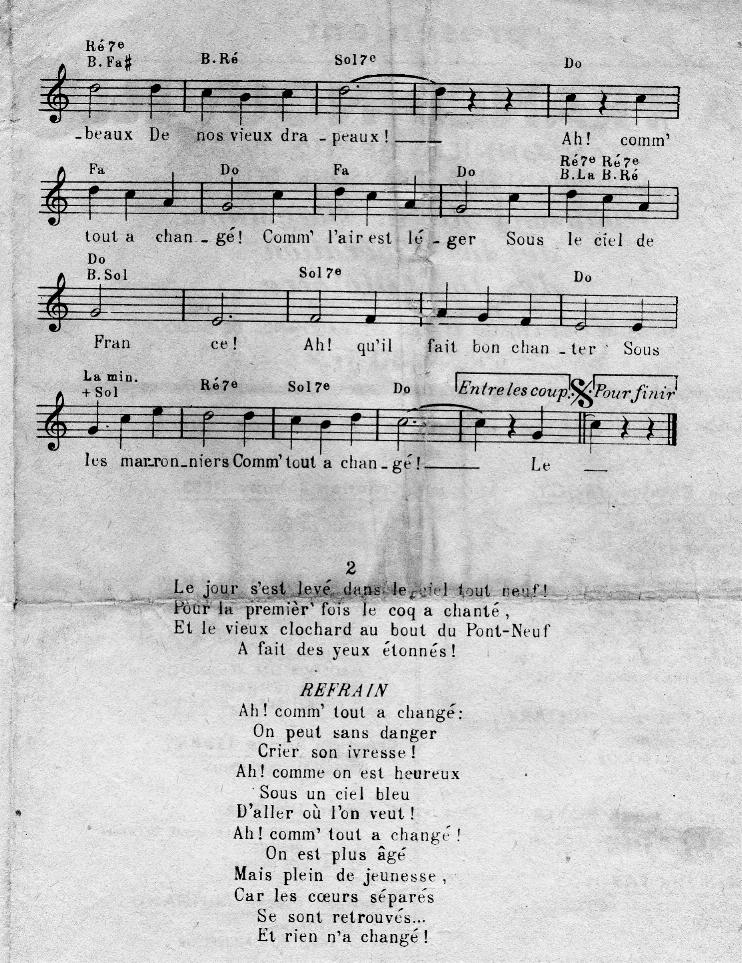 Ré7e
B.Fa♯ B.Ré Sol7e Do
_beaux De nos vieux dra _ peaux!____ Ah! comm'
Fa Do Fa Do Ré7e Ré7e
B.La B.Ré
tout a chan _ gé! Comm' l'air est lé _ ger Sous le ciel de
Do
B.Sol Sol7e Do
Fran ce! Ah! qu'il fait bon chan _ ter Sous
La min.
+ Sol Ré7e Sol7e Do Entre les coup. Pour finir
les mar_ron_niers Comm' tout a chan_gé!____ Le __
2
Le jour s'est levé dans le ciel tout neuf!
Pour la premièr' fois le coq a chanté,
Et le vieux clochard au bout du Pont-Neuf
A fait des yeux étonnés!
REFRAIN
Ah! comm' tout a changé:
On peut sans danger
Crier son ivresse!
Ah! comme on est heureux
Sous un ciel bleu
D'aller où l'on veut!
Ah! comm' tout a changé!
On est plus âgé
Mais plein de jeunesse,
Car les cœurs séparés
Se sont retrouvés...
Et rien n'a changé!